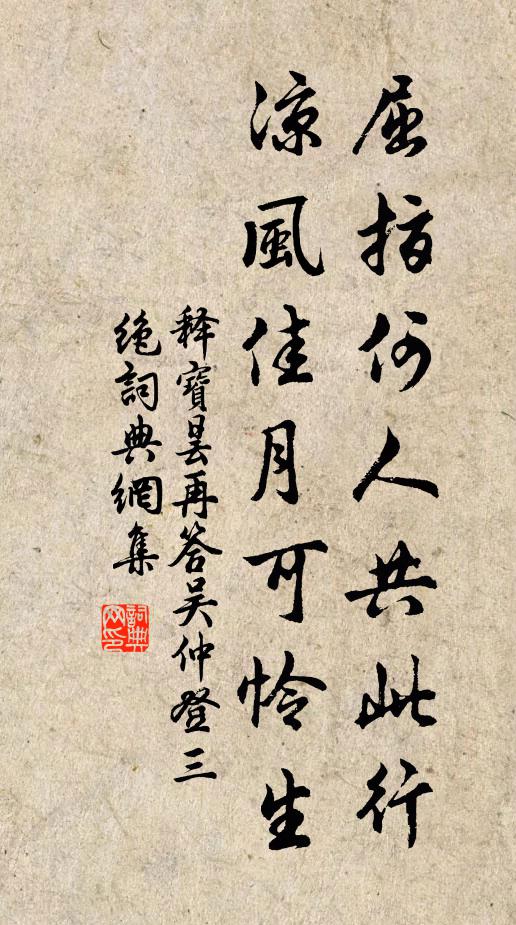 屈指何人共此行
涼風佳月可怜生
释寶曇再答吴仲登三
绝詞典網集
詞典網印